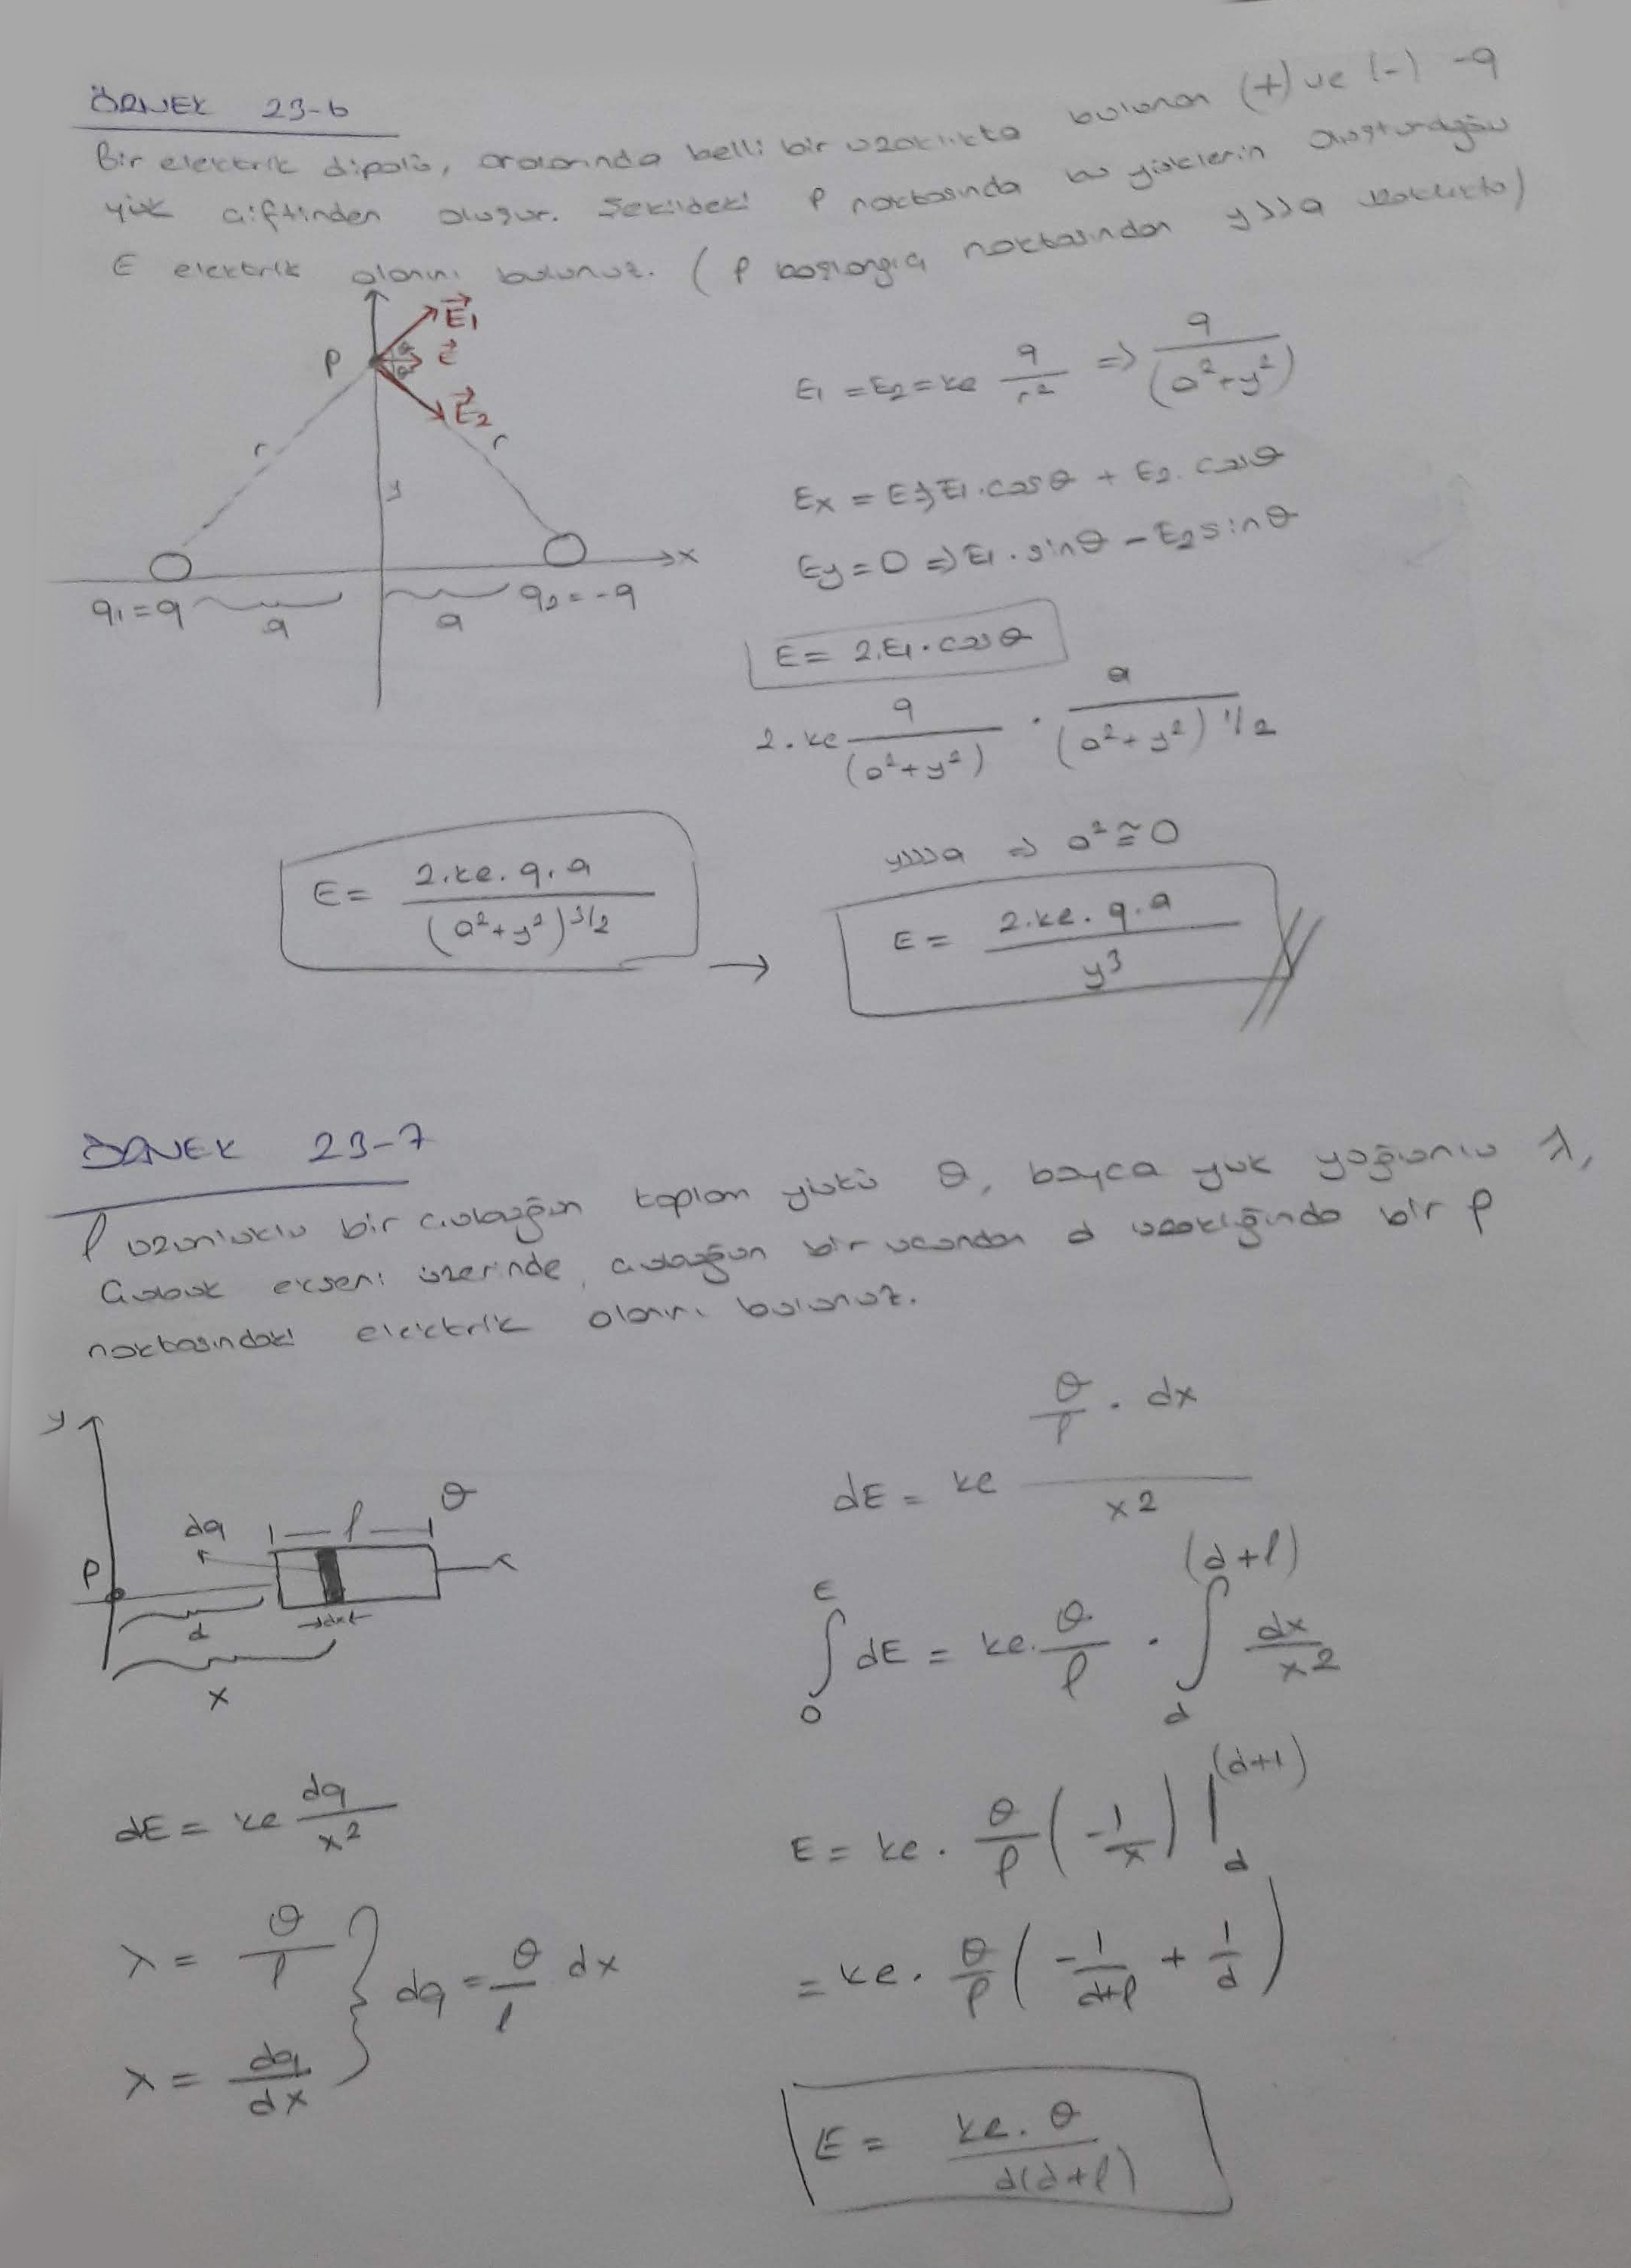 ÖRNEK 23-6
Bir elektrik dipolü, aralarında belli bir uzaklıkta bulunan (+) ve (-) -q
yük çiftinden oluşur. Şekildeki P noktasında bu yüklerin oluşturduğu
E elektrik alanını bulunuz. (P başlangıç noktasından y>>a uzaklıkta)
E⃗1
P
θ
θ
E⃗
E⃗2
r
r
y
x
q1=q
a
a
q2=-q
E1 = E2 = ke q/r² => q/(a²+y²)
Ex = E => E1.cosθ + E2.cosθ
Ey = 0 => E1.sinθ - E2 sinθ
E = 2.E1.cosθ
2.ke q/(a²+y²) . a/(a²+y²)^1/2
y>>>a => a² ≅ 0
E = 2.ke.q.a/(a²+y²)^3/2
→
E = 2.ke.q.a/y³
ÖRNEK 23-7
l uzunluklu bir çubuğun toplam yükü Q, boyca yük yoğunlu λ,
Çubuk ekseni üzerinde, çubuğun bir ucundan d uzaklığında bir P
noktasındaki elektrik alanını bulunuz.
y
dq
l
Q
P
d
dx
x
dE = ke dq/x²
λ = Q/l
λ = dq/dx
dq = Q/l dx
dE = ke (Q/l . dx)/x²
∫₀^E dE = ke. Q/l . ∫_d^(d+l) dx/x²
E = ke. Q/l (-1/x) |_d^(d+l)
= ke. Q/l (-1/(d+l) + 1/d)
E = ke.Q/d(d+l)